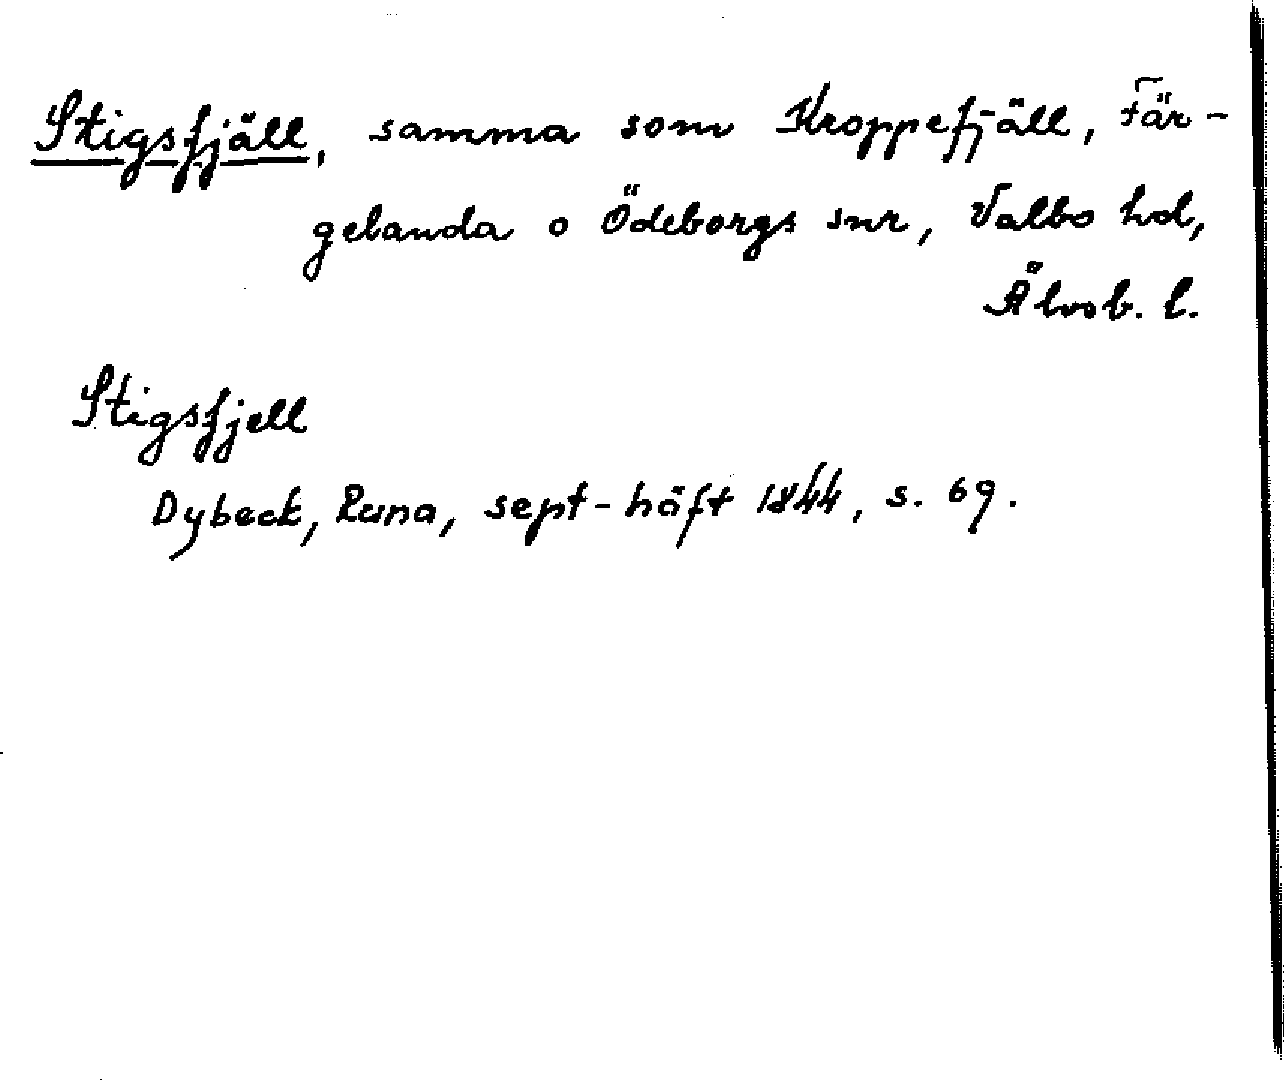 Stigsfjäll, samma som Kroppefjäll, Fär-
gelanda o Ödeborgs snr, Valbo hd,
Älvsb. l.
Stigsfjell
Dybeck, Runa, sept-häft 1844, s. 69.